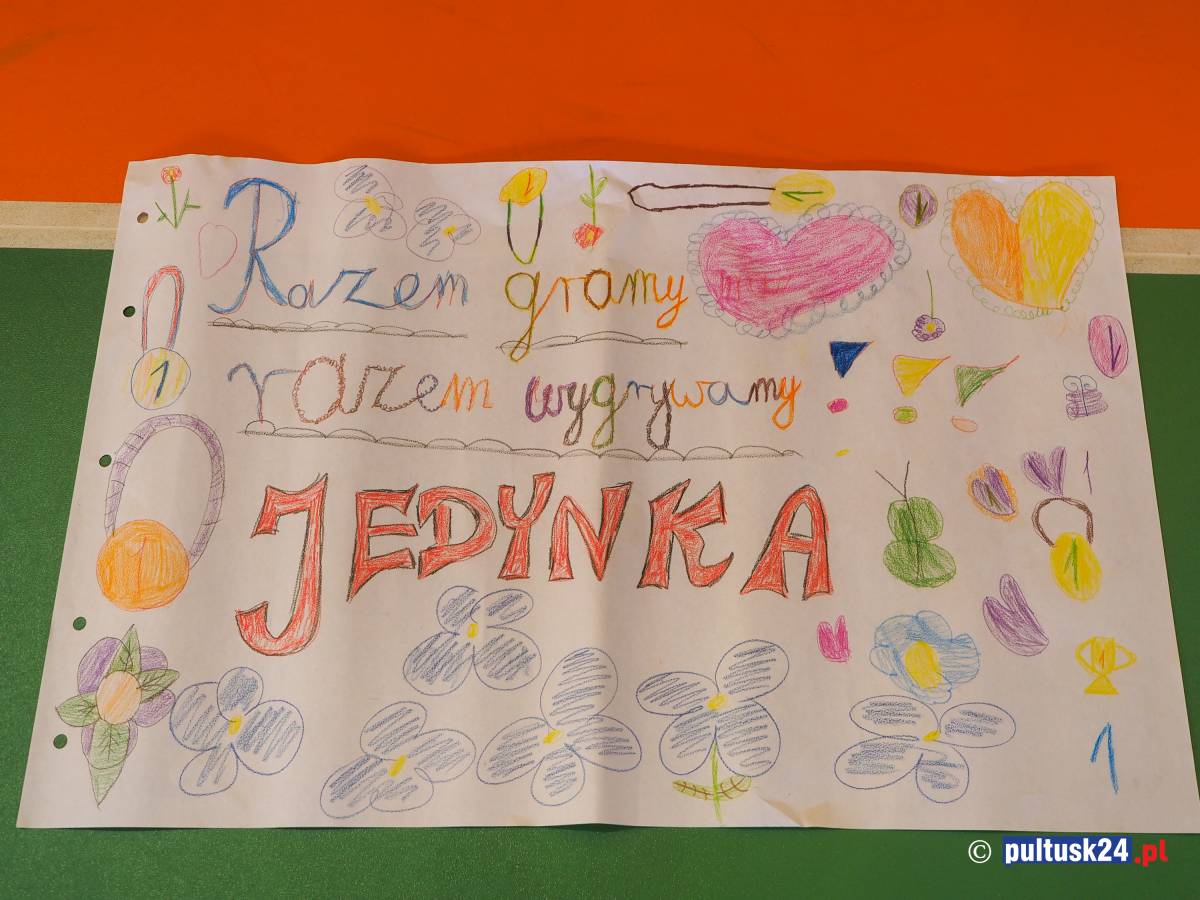 Razem gramy
razem wygrywamy
JEDYNKA
1
1
1
1
1
1
1
1
1
1
© pultusk24.pl